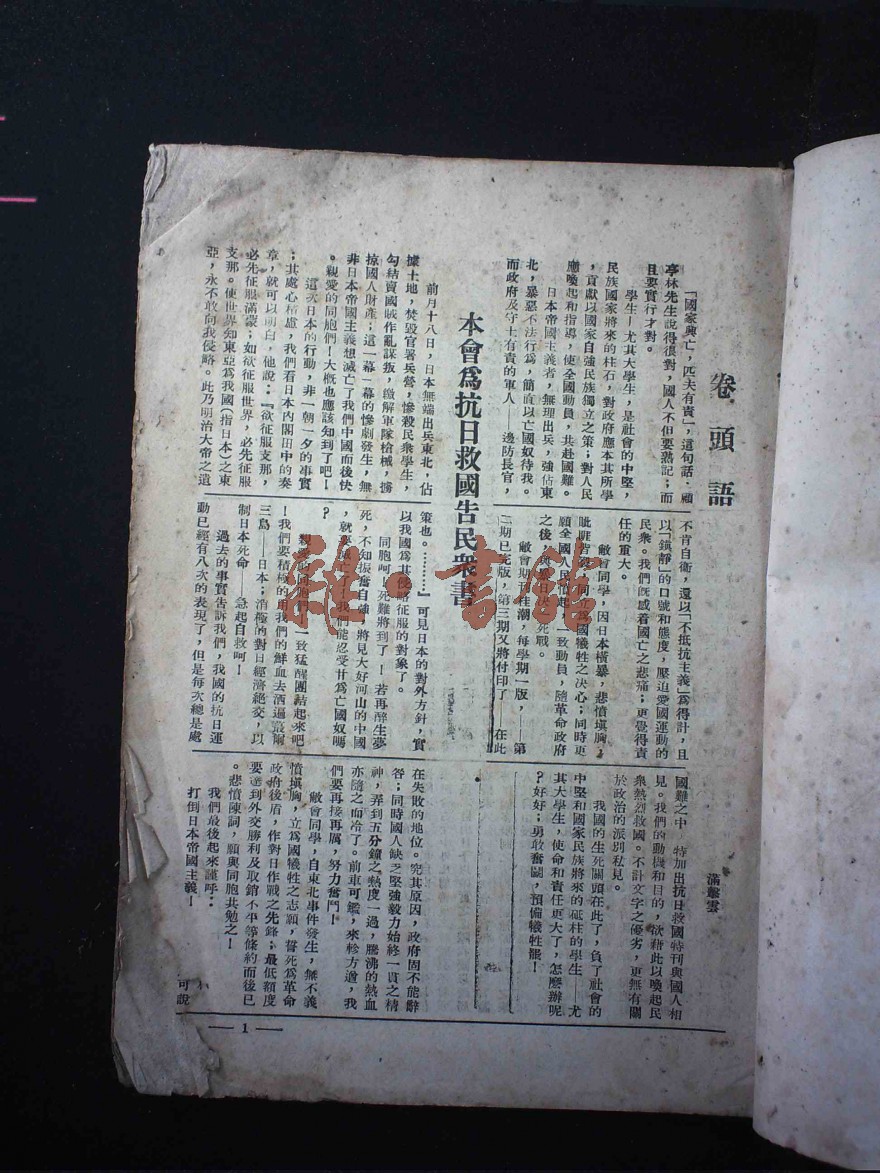 卷頭語
「國家興亡，匹夫有責」，這句話，顧
亭林先生說得很對，國人不但要熟記；而
且要實行才對。
學生—尤其大學生，是社會的中堅，
民族國家將來的柱石，對政府應本其所學
，貢獻以國家自強民族獨立之策；對人民
應喚起和指導，使全國動員，共赴國難。
日本帝國主義者，無理出兵，強佔東
北，暴惡不法行為，簡直以亡國奴待我。
而政府及守土有責的軍人——邊防長官，
不肯自衛，還以「不抵抗主義」為得計，且
以「鎮靜」的口號和態度，壓迫愛國運動的
民衆。我們旣感着國亡之悲痛；更覺得責
任的重大。
敝會同學，因日本橫暴，悲憤塡胸，
眦睚皆裂，同立為國犧牲之决心；同時更
願全國人民憤起，一致動員，隨革命政府
之後，與暴日决一死戰。
敝會期刊桂潮，每學期一版，——第
二期已完版，第三期又將付印了——在此
國難之中，特加出抗日救國特刊與國人相
見。我們的動機和目的，欲藉此以喚起民
衆熱烈救國。不計文字之優劣，更無有關
於政治的派別私見。
我國的生死關頭在此了，負了社會的
中堅和國家民族將來的砥柱的學生—尤
其大學生，使命和責任更大了，怎麼辦呢
？好好；勇敢奮鬭，預備犧牲罷！
滿 雲
本會爲抗日救國告民衆書
前月十八日，日本無端出兵東北，佔
據土地，焚毀官署兵營，慘殺民衆學生，
勾結賣國賊作亂謀叛，繳解軍隊槍械，擄
掠國人財產；這一幕一幕的慘劇發生，無
非日本帝國主義想滅亡了我們中國而後快
。親愛的同胞們！大概也應該知到了吧！
這次日本的行動，非一朝一夕的事實
；其處心積慮，我們看日本內閣田中的奏
章，就可以明白，他說：『欲征服支那，
必先征服滿蒙；如欲征服世界，必先征服
支那。使世界知東亞為我國（指日本）之東
亞，永不敢向我侵略。此乃明治大帝之遺
策也。………』可見日本的對外方針，實
以我國為其侵略征服的對象了。
同胞呵！死難將到了！若再醉生夢
死，不知振奮自強，將見大好河山的中國
，就來滅亡了！我們能忍受廿為亡國奴嗎
？
親愛的同胞們！一致猛醒團結起來吧
！我們要積極的用我們的鮮血去洒遍蕞爾
三島——日本；消極的對日經濟絕交，以
制日本死命——急起自救呵！
過去的事實告訴我們，我國的抗日運
動已經有八次的表現了，但是每次總是處
在失敗的地位。究其原因，政府固不能辭
咎；同時國人缺乏堅強毅力始終一貫之精
神，弄到五分鐘之熱度一過，騰沸的熱血
亦隨之而冷了。前車可鑑，來軫方遒，我
們要再接再厲，努力奮鬥！
敝會同學，自東北事件發生，無不義
憤塡胸，立為國犧牲之志願，誓死為革命
政府後盾，作對日作戰之先鋒；最低額度
要達到外交勝利及取銷不平等條約而後已
。悲憤陳詞，願與同胞共勉之！
我們最後起來謹呼：
打倒日本帝國主義！
可說
— 1 —
雜·書館